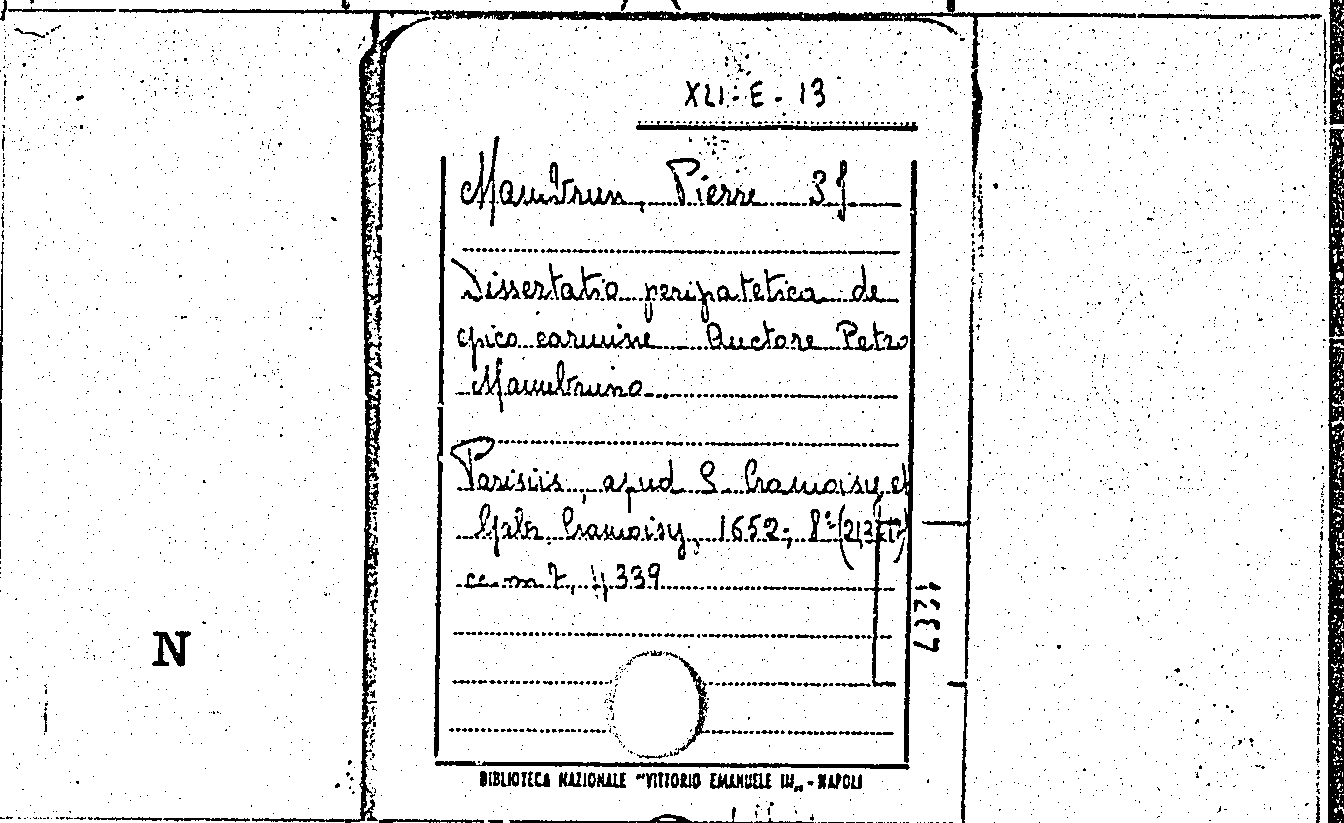 XLI-E-13
Mambrun, Pierre SJ.
Dissertatio peripatetica de
epico carmine Auctore Petro
Mambruno
Parisiis, apud S. Cramoisy et
Gabr. Cramoisy, 1652; 8°
339
N
BIBLIOTECA NAZIONALE "VITTORIO EMANUELE III„ - NAPOLI